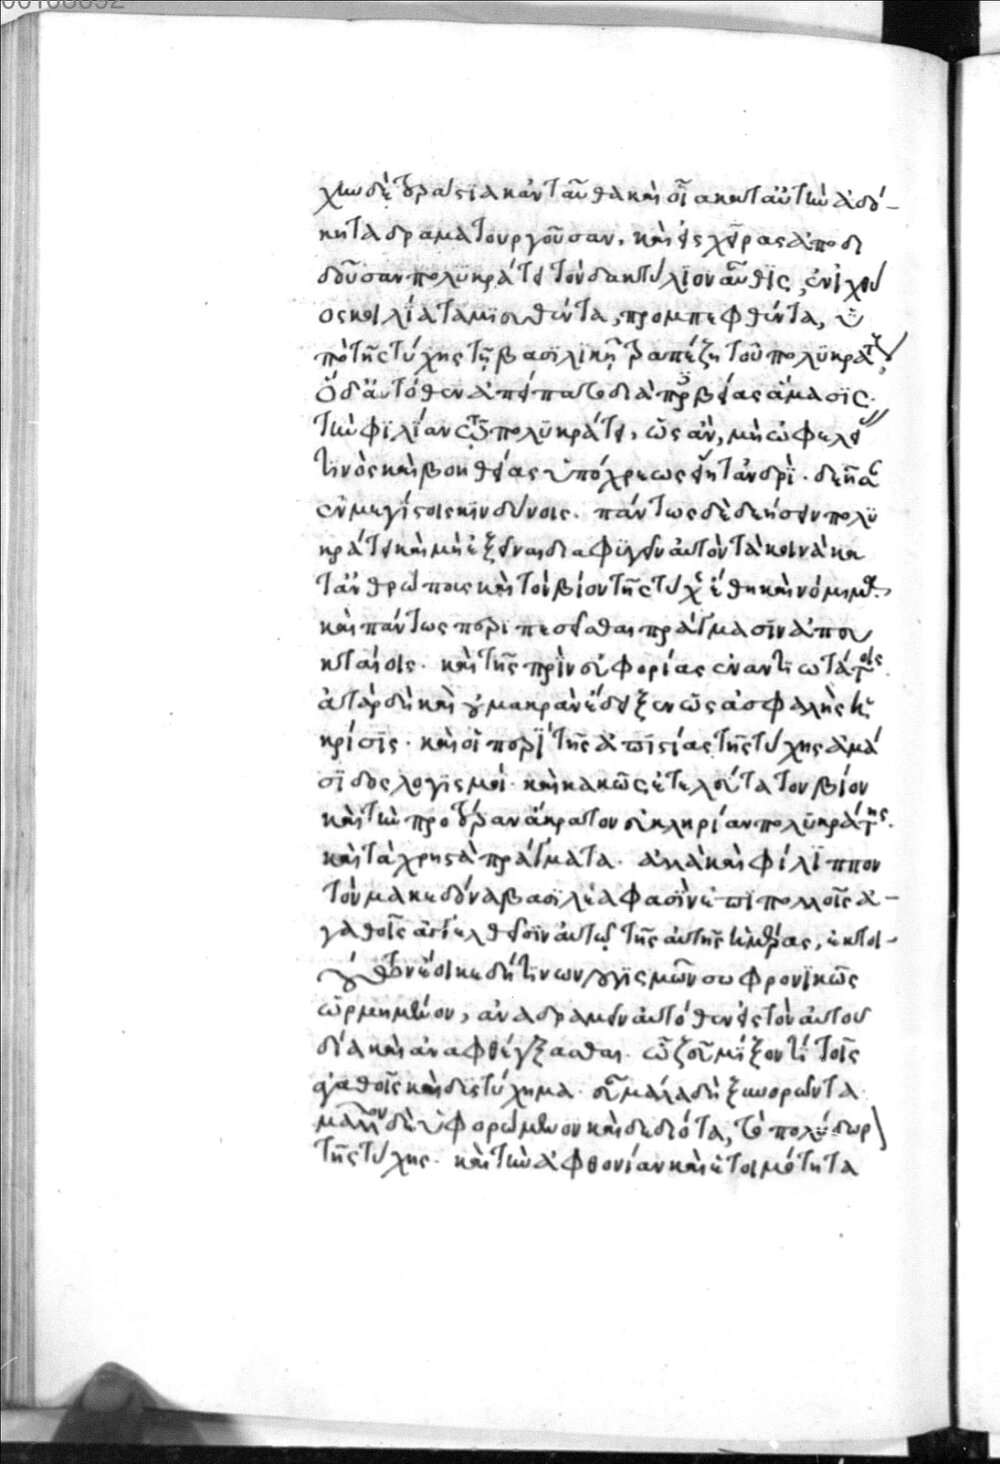 χην δὲ τραγῳδίακἀνταῦθα καὶ οἷα κατ' αὐτὴν ἀδό-
κητα δραματουργοῦσαν. καὶ ἐς χεῖρας ἀποδι
δοῦσαν πολυκράτει τὸν δακτύλιον αὖθις, ἐν ἰχθύ
ος κοιλία ταμιευθέντα, προπεμφθέντα, ὑ
πὸ τῆς τύχης τῇ βασιλικῇ τραπέζῃ τοῦ πολυκράτους,
ὁ δ' αὐτόθεν ἀπείπατο διὰ πρεσβείας ἄμασις
τὴν φιλίαν τῷ πολυκράτει, ὡς ἂν, μὴ ὠφελεί
τινὸς καὶ βοηθείας ὑπόχρεως εἴη τἀνδρὶ. δεηθ
ἐν μεγίστοις κινδύνοις. πάντως δὲ δεήσειν πολυ
κράτει καὶ μὴ ἐξεῖναι διαφυγεῖν αὐτὸν τὰ κοινὰ κα
τ' ἀνθρώποις καὶ τὸν βίον τῆς τύχης ἔθη καὶ νόμιμα.
καὶ πάντως περιπεσεῖσθαι πράγμασιν ἀπευ
κταίοις. καὶ τῆς πρὶν εὐφορίας ἐναντιωτάτοις.
ἀτὰρ δὴ καὶ οὐ μακρὰν ἔδειξεν ὡς ἀσφαλὴς ἡ
κρίσις. καὶ οἱ περὶ τῆς ἀπιστίας τῆς τύχης ἀμά
σιδος λογισμοί. καὶ κακῶς ἐτελεύτα τὸν βίον
καὶ τὴν προτέραν ἄκρατον εὐκληρίαν πολυκράτης.
καὶ τὰ χρηστὰ πράγματα. ἀλλὰ καὶ φίλιππον
τὸν μακεδόνα βασιλέα φασὶν ἐπὶ πολλοῖς ἀ-
γαθοῖς ἀγγελθεῖσιν αὐτῷ τῆς αὐτῆς ἡμέρας, ἐκ τοι-
ούτων ἔοικε δή τινων λογισμῶν σωφρονικῶς
ὡρμημένον, ἀναδραμεῖν αὐτόθεν εἰς τὸν αὐτοῦ
δία καὶ ἀναφθέγξασθαι. ὦ ζεῦ μῖξόν τι τοῖς
ἀγαθοῖς καὶ δυστύχημα. εὖ μάλα δὴ ξυνορῶντα
μᾶλλον δὲ ὑφορώμενον καὶ δεδιότα, τὸ πολύδωρ
τῆς τύχης. καὶ τὴν ἀφθονίαν καὶ ἑτοιμότητα